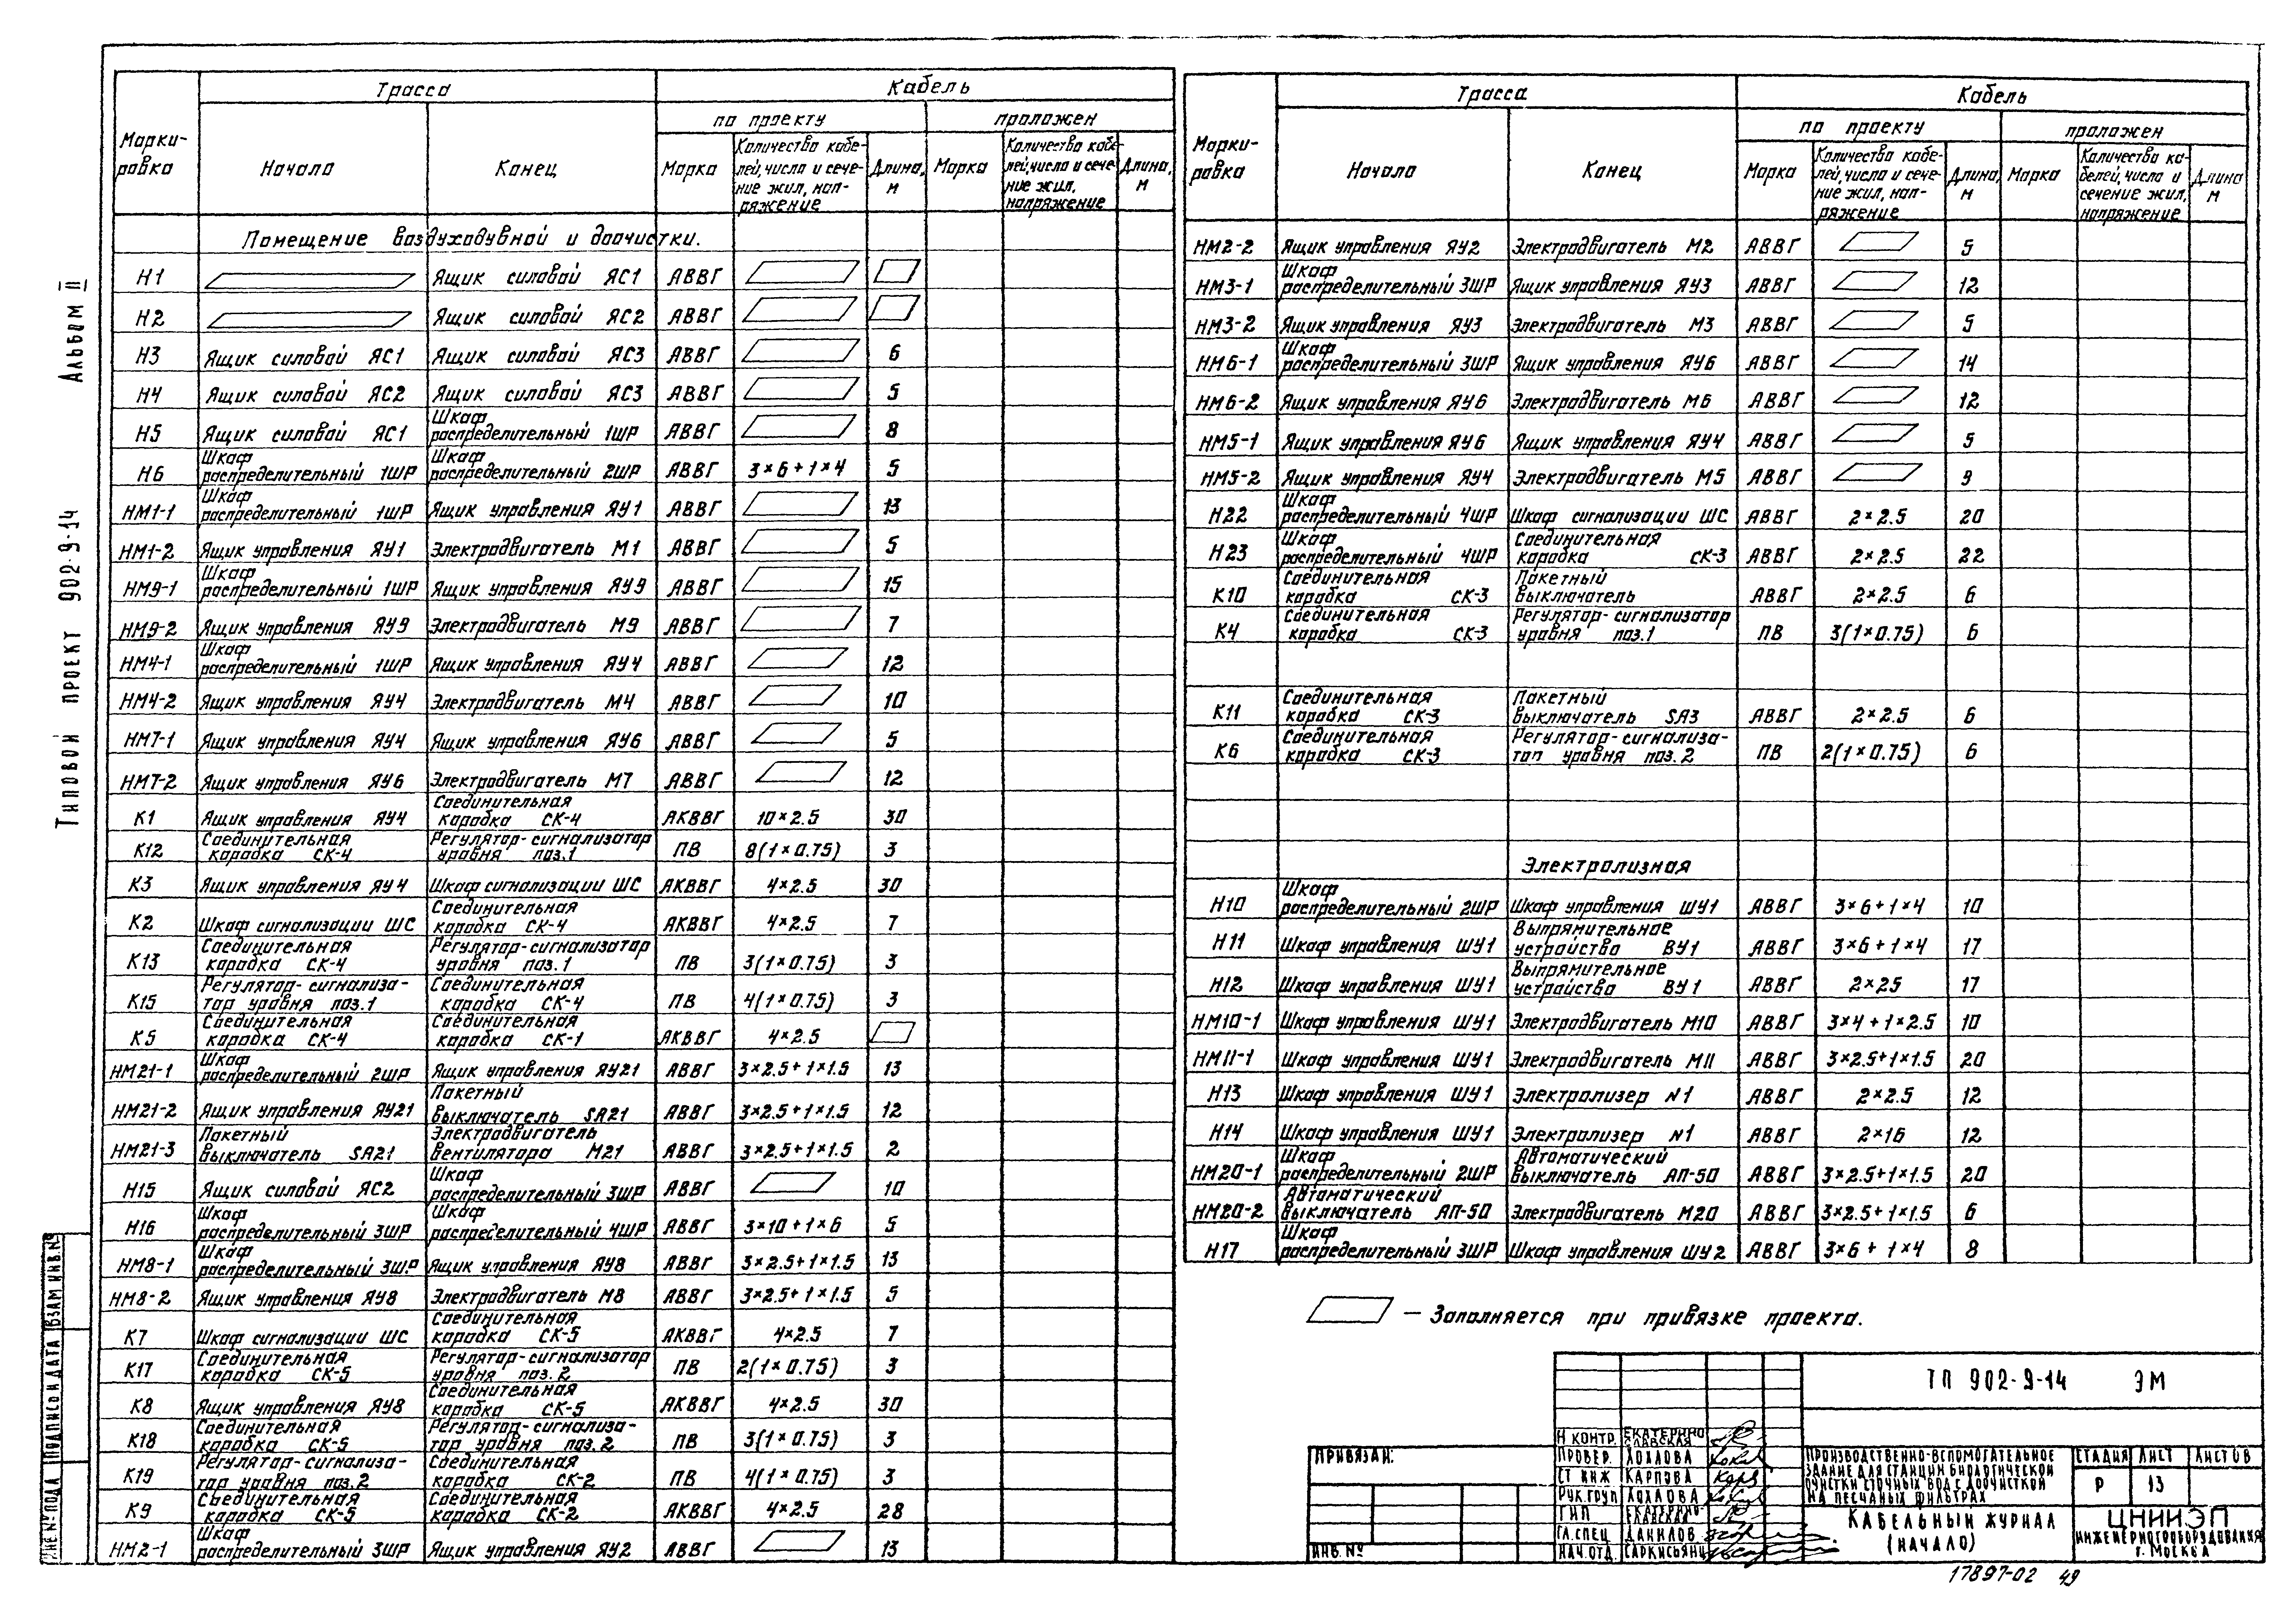 Типовой проект 902-9-14 Альбом II
Марки-
ровка
Трасса
Кабель
Начало
Конец
по проекту
проложен
Марка
Количество кабе-
лей, число и сече-
ние жил, нап-
ряжение
Длина,
м
Марка
Количество кабе-
лей, число и сече-
ние жил,
напряжение
Длина,
м
Помещение воздуходувной и доочистки.
Н1 Ящик силовой ЯС1 АВВГ
Н2 Ящик силовой ЯС2 АВВГ
Н3 Ящик силовой ЯС1 Ящик силовой ЯС3 АВВГ 6
Н4 Ящик силовой ЯС2 Ящик силовой ЯС3 АВВГ 5
Н5 Ящик силовой ЯС1 Шкаф распределительный 1ШР АВВГ 8
Н6 Шкаф распределительный 1ШР Шкаф распределительный 2ШР АВВГ 3×6+1×4 5
НМ1-1 Шкаф распределительный 1ШР Ящик управления ЯУ1 АВВГ 13
НМ1-2 Ящик управления ЯУ1 Электродвигатель М1 АВВГ 5
НМ9-1 Шкаф распределительный 1ШР Ящик управления ЯУ9 АВВГ 15
НМ9-2 Ящик управления ЯУ9 Электродвигатель М9 АВВГ 7
НМ4-1 Шкаф распределительный 1ШР Ящик управления ЯУ4 АВВГ 12
НМ4-2 Ящик управления ЯУ4 Электродвигатель М4 АВВГ 10
НМ7-1 Ящик управления ЯУ4 Ящик управления ЯУ6 АВВГ 5
НМ7-2 Ящик управления ЯУ6 Электродвигатель М7 АВВГ 12
К1 Ящик управления ЯУ4 Соединительная коробка СК-4 АКВВГ 10×2.5 30
К12 Соединительная коробка СК-4 Регулятор-сигнализатор уровня поз.1 ПВ 8(1×0.75) 3
К3 Ящик управления ЯУ4 Шкаф сигнализации ШС АКВВГ 4×2.5 30
К2 Шкаф сигнализации ШС Соединительная коробка СК-4 АКВВГ 4×2.5 7
К13 Соединительная коробка СК-4 Регулятор-сигнализатор уровня поз.1 ПВ 3(1×0.75) 3
К15 Регулятор-сигнализа-тор уровня поз.1 Соединительная коробка СК-4 ПВ 4(1×0.75) 3
К5 Соединительная коробка СК-4 Соединительная коробка СК-1 АКВВГ 4×2.5
НМ21-1 Шкаф распределительный 2ШР Ящик управления ЯУ21 АВВГ 3×2.5+1×1.5 13
НМ21-2 Ящик управления ЯУ21 Пакетный выключатель SА21 АВВГ 3×2.5+1×1.5 12
НМ21-3 Пакетный выключатель SА21 Электродвигатель вентилятора М21 АВВГ 3×2.5+1×1.5 2
Н15 Ящик силовой ЯС2 Шкаф распределительный 3ШР АВВГ 10
Н16 Шкаф распределительный 3ШР Шкаф распределительный 4ШР АВВГ 3×10+1×6 5
НМ8-1 Шкаф распределительный 3ШР Ящик управления ЯУ8 АВВГ 3×2.5+1×1.5 13
НМ8-2 Ящик управления ЯУ8 Электродвигатель М8 АВВГ 3×2.5+1×1.5 5
К7 Шкаф сигнализации ШС Соединительная коробка СК-5 АКВВГ 4×2.5 7
К17 Соединительная коробка СК-5 Регулятор-сигнализатор уровня поз.2 ПВ 2(1×0.75) 3
К8 Ящик управления ЯУ8 Соединительная коробка СК-5 АКВВГ 4×2.5 30
К18 Соединительная коробка СК-5 Регулятор-сигнализа-тор уровня поз.2 ПВ 3(1×0.75) 3
К19 Регулятор-сигнализа-тор уровня поз.2 Соединительная коробка СК-2 ПВ 4(1×0.75) 3
К9 Соединительная коробка СК-5 Соединительная коробка СК-2 АКВВГ 4×2.5 28
НМ2-1 Шкаф распределительный 3ШР Ящик управления ЯУ2 АВВГ 13
Марки-
ровка
Трасса
Кабель
Начало
Конец
по проекту
проложен
Марка
Количество кабе-
лей, число и сече-
ние жил, нап-
ряжение
Длина,
м
Марка
Количество ка-
белей, число и
сечение жил,
напряжение
Длина
м
НМ2-2 Ящик управления ЯУ2 Электродвигатель М2 АВВГ 5
НМ3-1 Шкаф распределительный 3ШР Ящик управления ЯУ3 АВВГ 12
НМ3-2 Ящик управления ЯУ3 Электродвигатель М3 АВВГ 5
НМ6-1 Шкаф распределительный 3ШР Ящик управления ЯУ6 АВВГ 14
НМ6-2 Ящик управления ЯУ6 Электродвигатель М6 АВВГ 12
НМ5-1 Ящик управления ЯУ6 Ящик управления ЯУ4 АВВГ 5
НМ5-2 Ящик управления ЯУ4 Электродвигатель М5 АВВГ 9
Н22 Шкаф распределительный 4ШР Шкаф сигнализации ШС АВВГ 2×2.5 20
Н23 Шкаф распределительный 4ШР Соединительная коробка СК-3 АВВГ 2×2.5 22
К10 Соединительная коробка СК-3 Пакетный выключатель АВВГ 2×2.5 6
К4 Соединительная коробка СК-3 Регулятор-сигнализатор уровня поз.1 ПВ 3(1×0.75) 6
К11 Соединительная коробка СК-3 Пакетный выключатель SА3 АВВГ 2×2.5 6
К6 Соединительная коробка СК-3 Регулятор-сигнализа-тор уровня поз.2 ПВ 2(1×0.75) 6
Электролизная
Н10 Шкаф распределительный 2ШР Шкаф управления ШУ1 АВВГ 3×6+1×4 10
Н11 Шкаф управления ШУ1 Выпрямительное устройство ВУ1 АВВГ 3×6+1×4 17
Н12 Шкаф управления ШУ1 Выпрямительное устройство ВУ1 АВВГ 2×25 17
НМ10-1 Шкаф управления ШУ1 Электродвигатель М10 АВВГ 3×4+1×2.5 10
НМ11-1 Шкаф управления ШУ1 Электродвигатель М11 АВВГ 3×2.5+1×1.5 20
Н13 Шкаф управления ШУ1 Электролизер №1 АВВГ 2×2.5 12
Н14 Шкаф управления ШУ1 Электролизер №1 АВВГ 2×16 12
НМ20-1 Шкаф распределительный 2ШР Автоматический выключатель АП-50 АВВГ 3×2.5+1×1.5 20
НМ20-2 Автоматический выключатель АП-50 Электродвигатель М20 АВВГ 3×2.5+1×1.5 6
Н17 Шкаф распределительный 3ШР Шкаф управления ШУ2 АВВГ 3×6+1×4 8
— Заполняется при привязке проекта.
Привязан:
Инв.№
Н контр. Екатерино-славская
Провер. Хохлова
Ст инж Карпова
Рук.груп Хохлова
ГИП
Гл.спец Данилов
Нач.отд. Саркисьянц
ТП 902-9-14 ЭМ
Производственно-вспомогательное
здание для станции биологической
очистки сточных вод с доочисткой
на песчаных фильтрах
Стадия Лист Листов
Р 13
Кабельный журнал
(начало)
ЦНИИЭП
инженерного оборудования
г. Москва
17897-02 49
Инв № подл Подпись и дата Взам инв.№